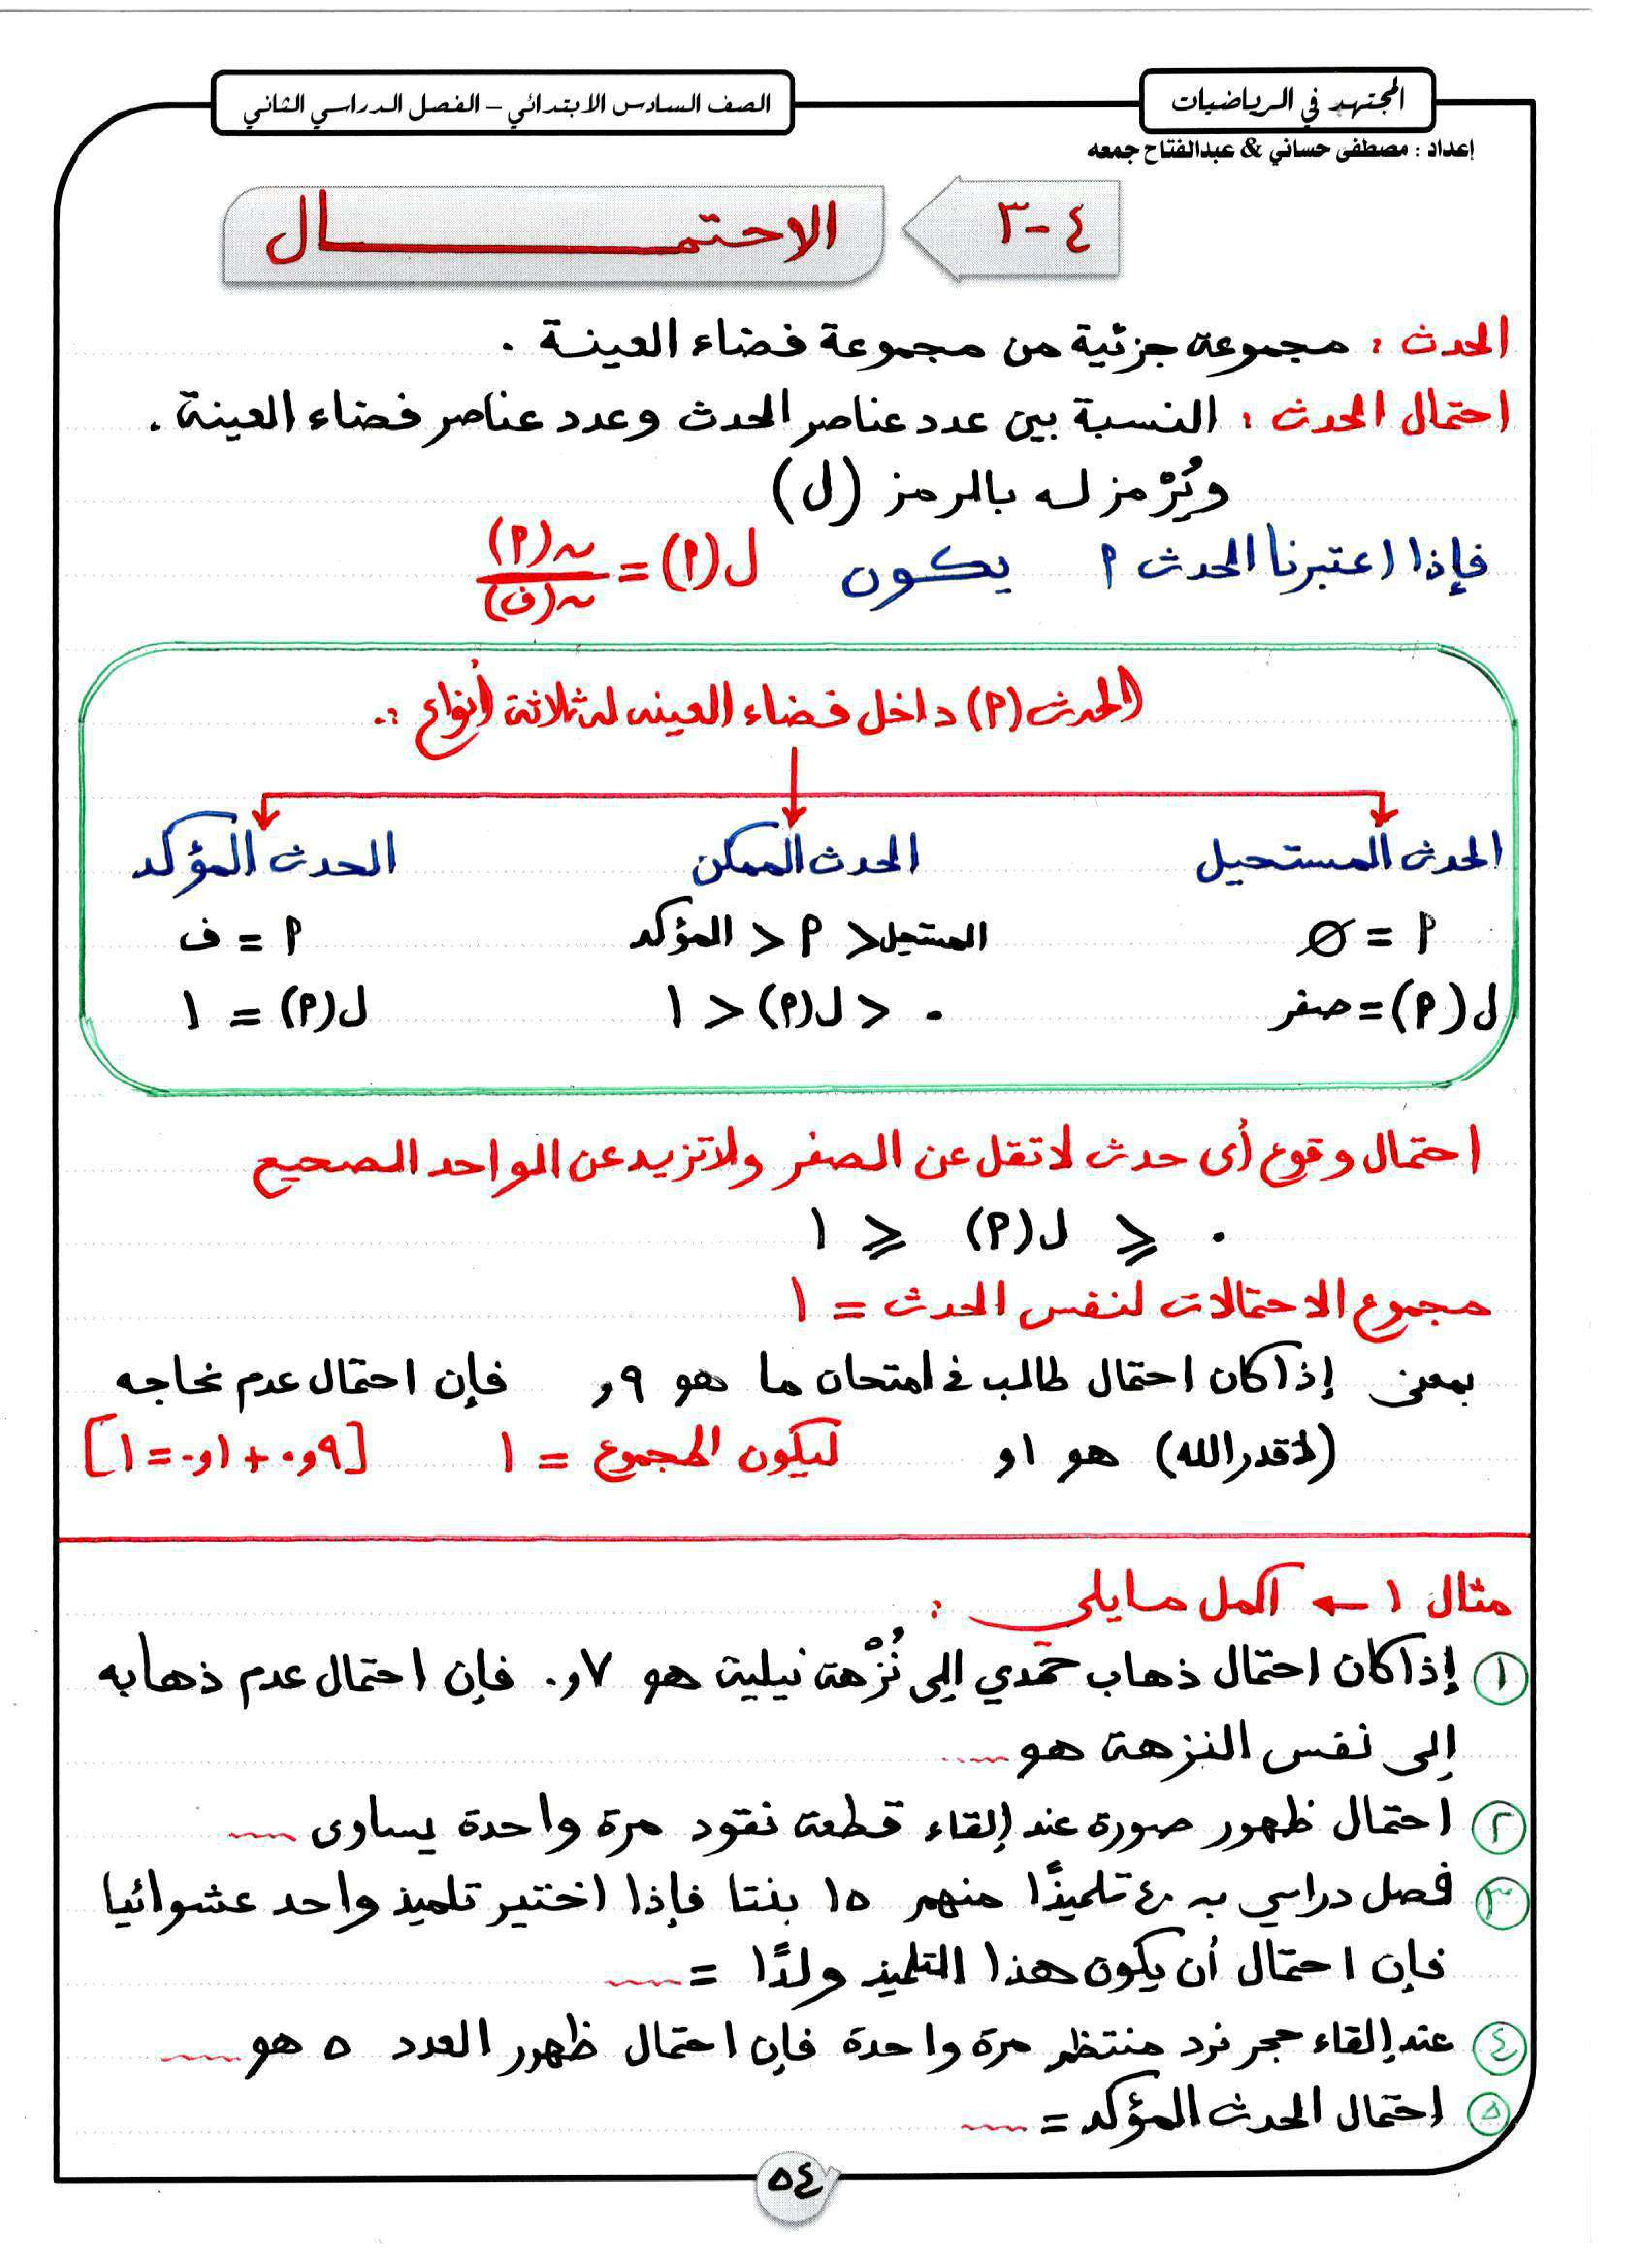 المجتهد في الرياضيات
الصف السادس الابتدائي – الفصل الدراسي الثاني
إعداد : مصطفى حساني & عبدالفتاح جمعه
٤-٣
الاحتمـــــــــــال
الحدث : مجموعة جزئية من مجموعة فضاء العينة .
احتمال الحدث : النسبة بين عدد عناصر الحدث وعدد عناصر فضاء العينة .
ويُرْمز له بالرمز (ل)
فإذا اعتبرنا الحدث P يكون ل(P) = ں(P) / ں(ف)
الحدث (P) داخل فضاء العينه له ثلاثة أنواع :.
الحدث المستحيل
الحدث الممكن
الحدث المؤكد
P = Ø
المستحيل < P < المؤكد
P = ف
ل(P) = صفر
٠ < ل(P) < ١
ل(P) = ١
احتمال وقوع أى حدث لا تقل عن الصفر ولا تزيد عن الواحد الصحيح
٠ ⩽ ل(P) ⩽ ١
مجموع الاحتمالات لنفس الحدث = ١
بمعنى إذا كان احتمال طالب في امتحان ما هو ٩و فإن احتمال عدم نجاحه
(لاقدر الله) هو ١و ليكون المجموع = ١ [٩و٠ + ١و٠ = ١]
مثال ١ ← أكمل مايلي :
١ إذا كان احتمال ذهاب حمدي إلى نُزْهة نيلية هو ٧و٠ فإن احتمال عدم ذهابه
إلى نفس النزهة هو ....
٢ احتمال ظهور صورة عند إلقاء قطعة نقود مرة واحدة يساوى ....
٣ فصل دراسي به ٤٠ تلميذًا منهم ١٥ بنتا فإذا اختير تلميذ واحد عشوائيا
فإن احتمال أن يكون هذا التلميذ ولدًا = ....
٤ عند إلقاء حجر نرد منتظم مرة واحدة فإن احتمال ظهور العدد ٥ هو ....
٥ احتمال الحدث المؤكد = ....
٥٤